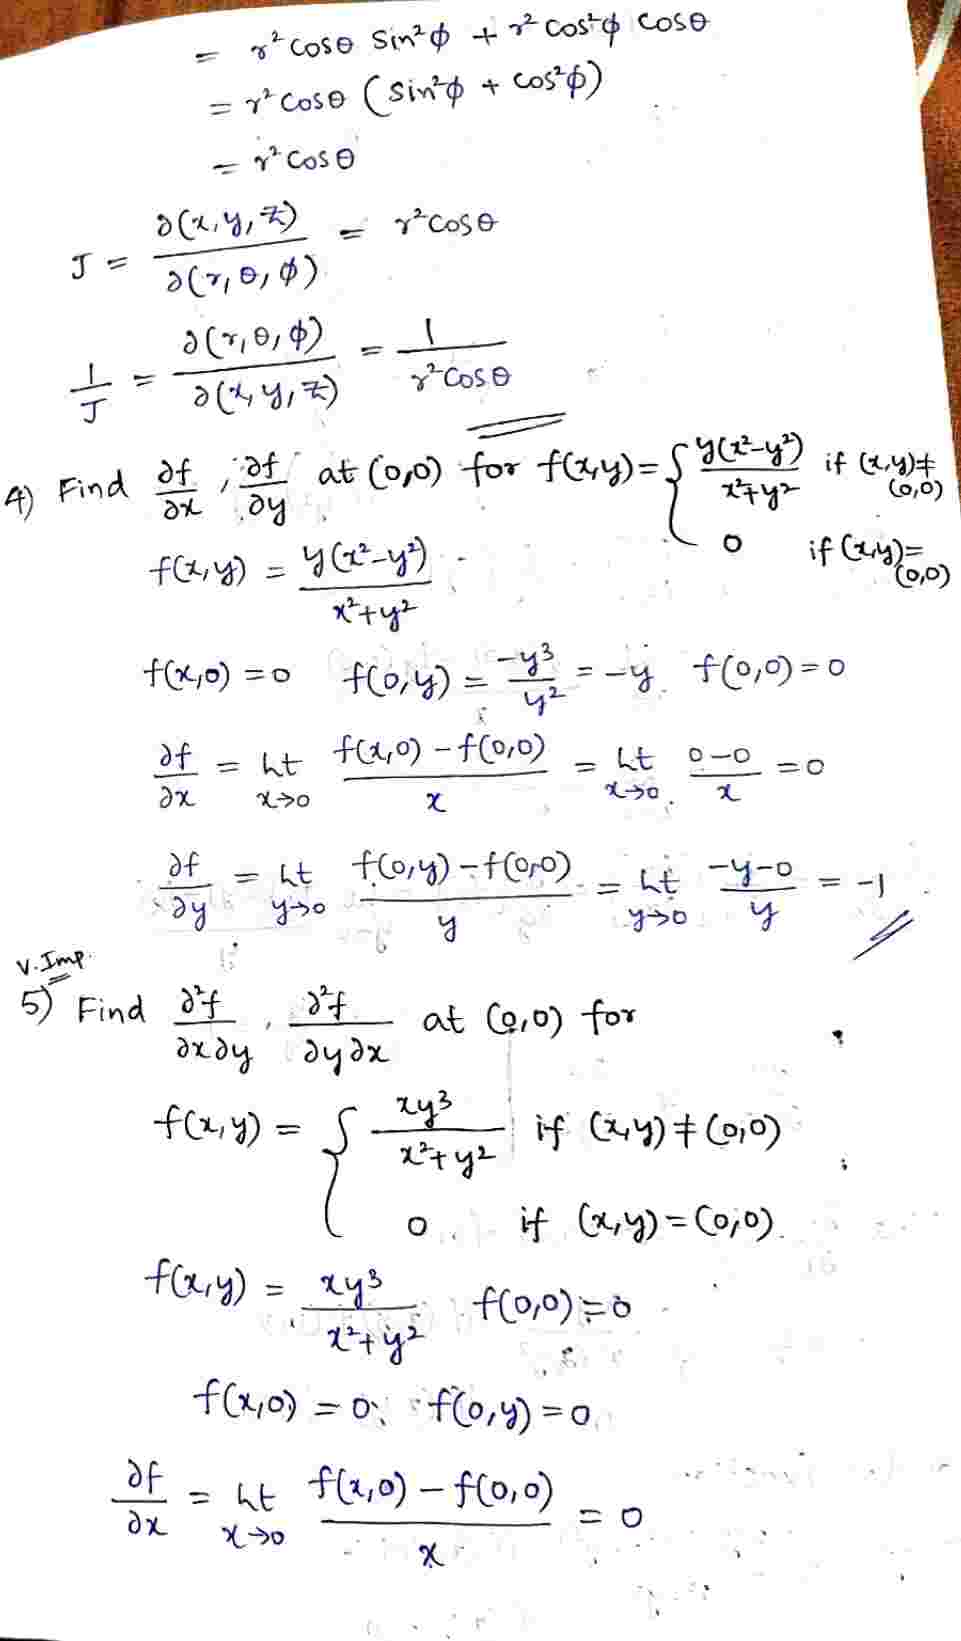 = r² cosθ sin²ϕ + r² cos²ϕ cosθ
= r² cosθ (sin²ϕ + cos²ϕ)
= r² cosθ
J = ∂(x,y,z)/∂(r,θ,ϕ) = r² cosθ
1/J = ∂(r,θ,ϕ)/∂(x,y,z) = 1/(r² cosθ)
4) Find ∂f/∂x , ∂f/∂y at (0,0) for f(x,y) = { y(x²-y²)/(x²+y²) if (x,y)≠(0,0)
0 if (x,y)=(0,0)
f(x,y) = y(x²-y²)/(x²+y²)
f(x,0) = 0 f(0,y) = -y³/y² = -y f(0,0) = 0
∂f/∂x = Lt x→0 (f(x,0) - f(0,0))/x = Lt x→0 (0-0)/x = 0
∂f/∂y = Lt y→0 (f(0,y) - f(0,0))/y = Lt y→0 (-y-0)/y = -1
V. Imp.
5) Find ∂²f/∂x∂y , ∂²f/∂y∂x at (0,0) for
f(x,y) = { xy³/(x²+y²) if (x,y) ≠ (0,0)
0 if (x,y) = (0,0)
f(x,y) = xy³/(x²+y²) f(0,0) = 0
f(x,0) = 0 f(0,y) = 0
∂f/∂x = Lt x→0 (f(x,0) - f(0,0))/x = 0